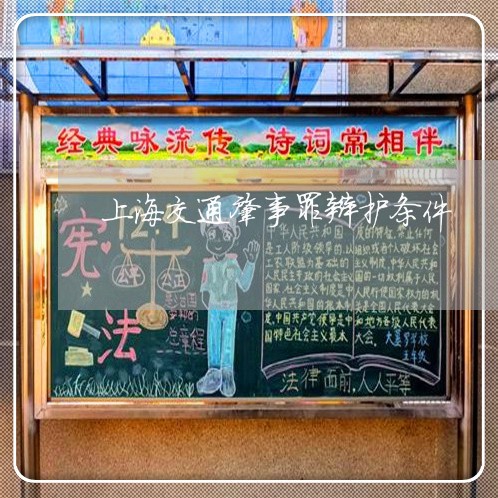 经典咏流传 诗词常相伴
上海交通肇事罪辩护条件
宪法
公平 公正
总章程
中华人民共和国
是工人阶级领导的，以
工农联盟为基础的
人民民主专政的社会主义
国家，社会主义制度是中
华人民共和国的根本制
度，中国共产党领导是中
国特色社会主义最本
质的特征，禁止任何
组织或者个人破坏社会
主义制度，中华人民共和
国的一切权利属于人民，
人民行使国家权力的机
关是全国人民代表大会
和地方各级人民代表
大会。
五年级
法律面前，人人平等